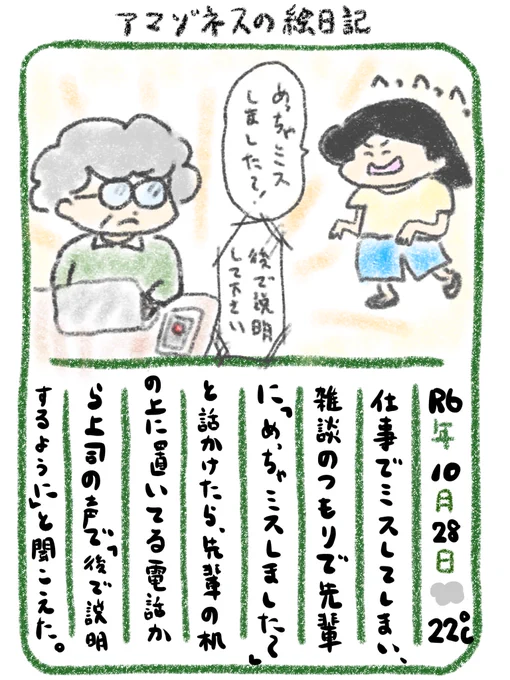 アマゾネスの絵日記
へっへっへっ
めっちゃミス
しましたて!
後で説明
して下さい
R6年10月28日 22℃
仕事でミスしてしまい、
雑談のつもりで先輩
に「めっちゃミスしましたて」
と話かけたら、先輩の机
の上に置いてる電話か
ら上司の声で「後で説明
するように」と聞こえた。